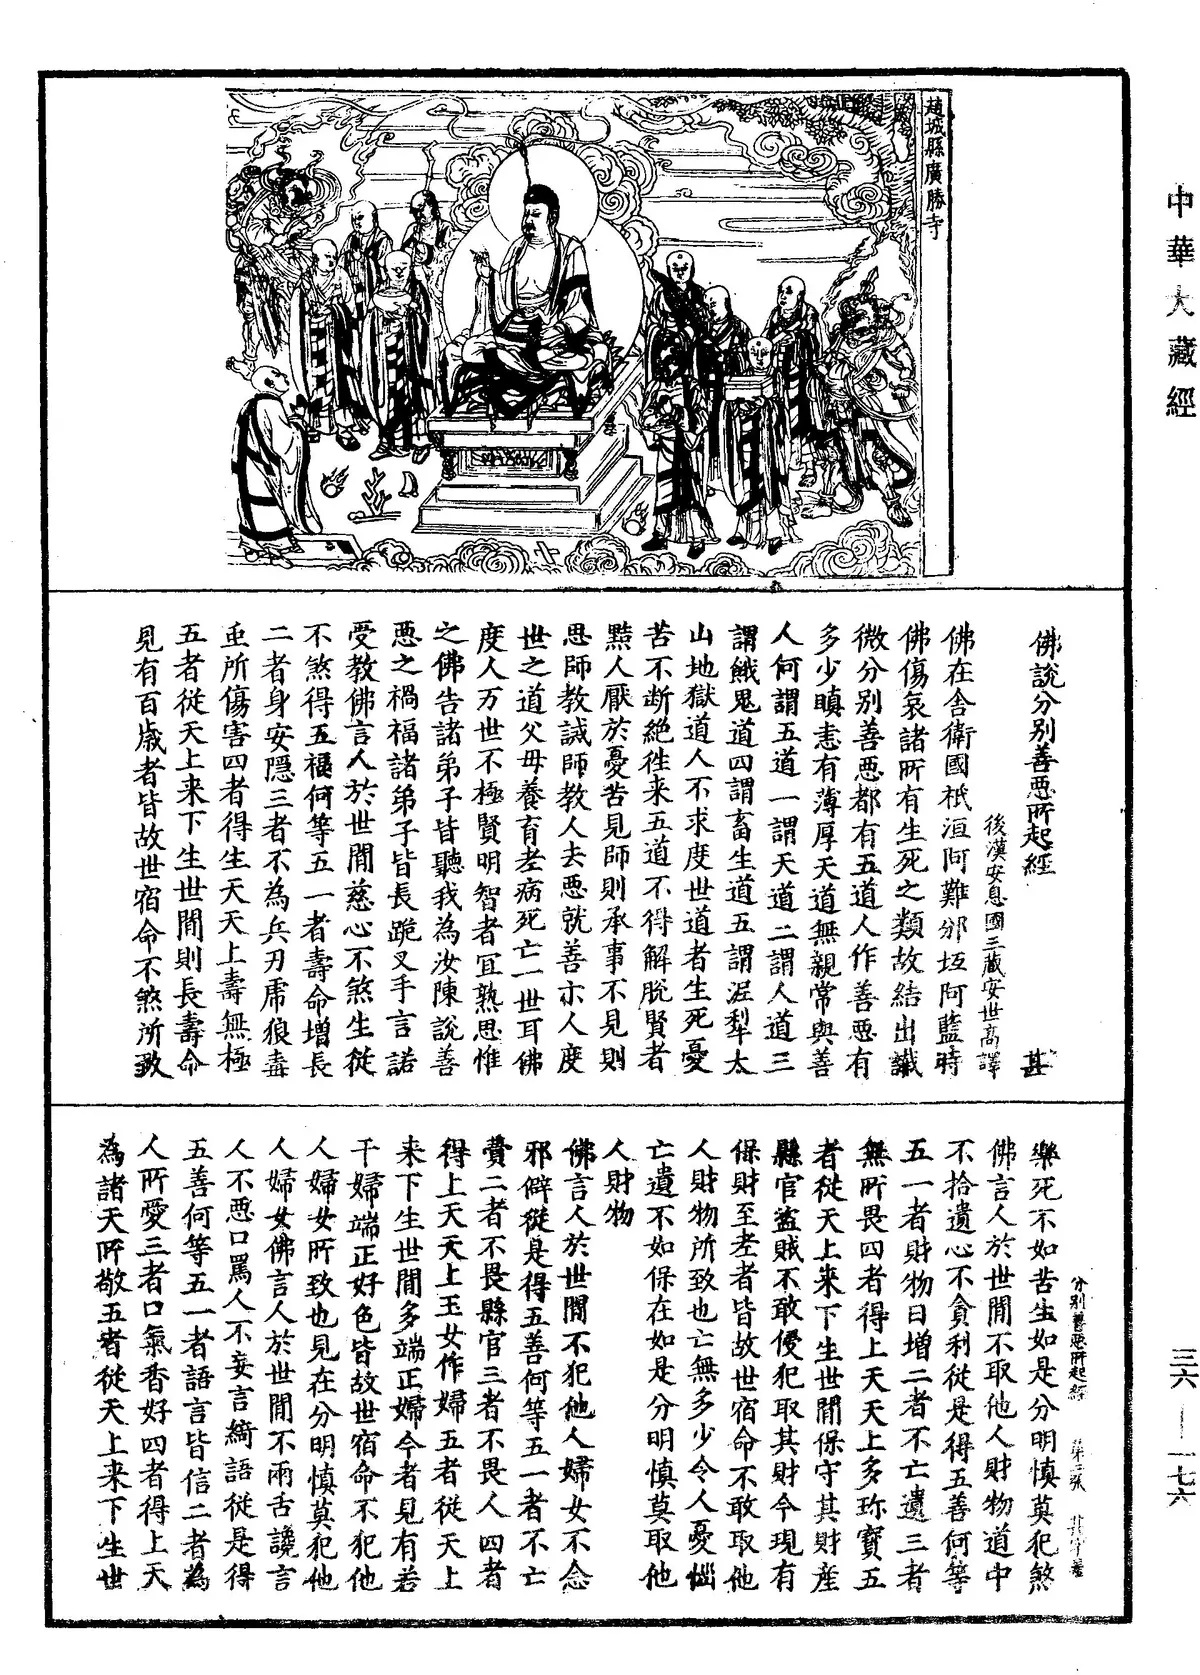 中華大藏經
趙城縣廣勝寺
佛說分別善惡所起經 甚
後漢安息國三藏安世高譯
佛在舍衛國祇洹阿難邠坻阿藍時
佛傷哀諸所有生死之類故結出讖
微分別善惡都有五道人作善惡有
多少瞋恚有薄厚天道無親常與善
人何謂五道一謂天道二謂人道三
謂餓鬼道四謂畜生道五謂泥犁太
山地獄道人不求度世道者生死憂
苦不斷絕徃来五道不得解脫賢者
黠人厭於憂苦見師則承事不見則
思師教誡師教人去惡就善亦人度
世之道父母養育老病死亡一世耳佛
度人万世不極賢明智者冝熟思惟
之佛告諸弟子皆聽我為汝陳說善
惡之禍福諸弟子皆長跪叉手言諾
受教佛言人於世間慈心不煞生從
不煞得五福何等五一者壽命增長
二者身安隱三者不為兵刃虎狼毒
虫所傷害四者得生天天上壽無極
五者從天上来下生世間則長壽命
見有百歲者皆故世宿命不煞所致
樂死不如苦生如是分明慎莫犯煞
佛言人於世間不取他人財物道中
不拾遺心不貪利從是得五善何等
五一者財物日增二者不亡遺三者
無所畏四者得上天天上多珎寶五
者從天上来下生世間保守其財產
縣官盗賊不敢侵犯取其財今現有
保財至老者皆故世宿命不敢取他
人財物所致也亡無多少令人憂惱
亡遺不如保在如是分明慎莫取他
人財物
佛言人於世間不犯他人婦女不念
邪僻從是得五善何等五一者不亡
費二者不畏縣官三者不畏人四者
得上天天上玉女作婦五者從天上
来下生世間多端正婦今者見有若
干婦端正好色皆故世宿命不犯他
人婦女所致也見在分明慎莫犯他
人婦女佛言人於世間不兩舌讒言
人不惡口罵人不妄言綺語從是得
五善何等五一者語言皆信二者為
人所愛三者口氣香好四者得上天
為諸天所敬五者從天上来下生世
分別善惡所起經 第二張 甚字号
三六—一七六